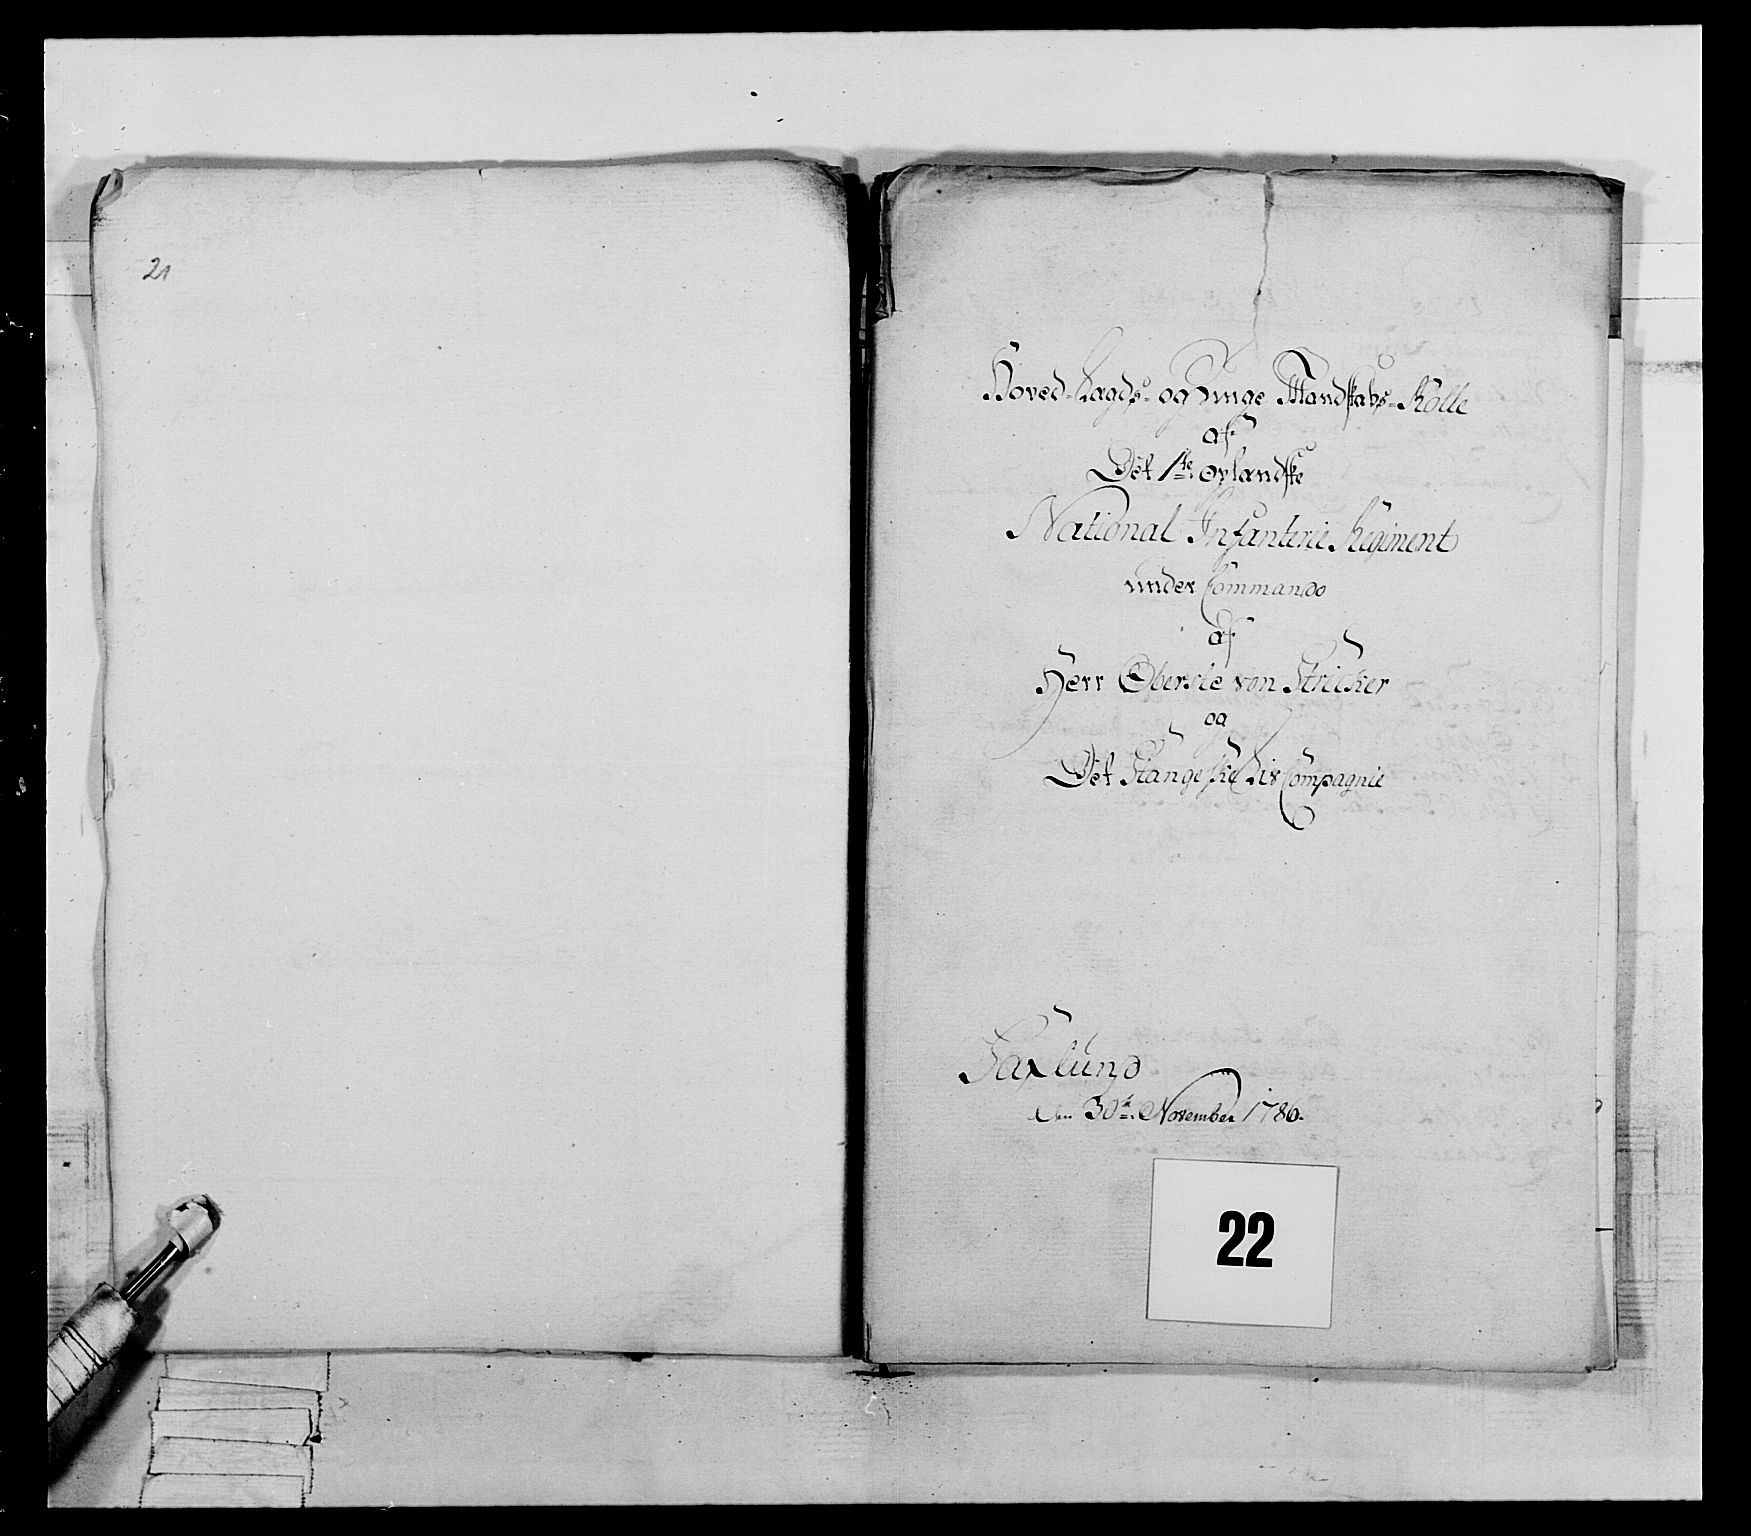 21
Hoved-Lægds- og Unge Mandskabs-Rolle
af
Det 1te oplandske
National Infanterie Regiment
under Commando
af
Herr Oberste von Stricker
og
Det Stangeske Dis Compagnie
Saxlund
den 30te November 1786.
22